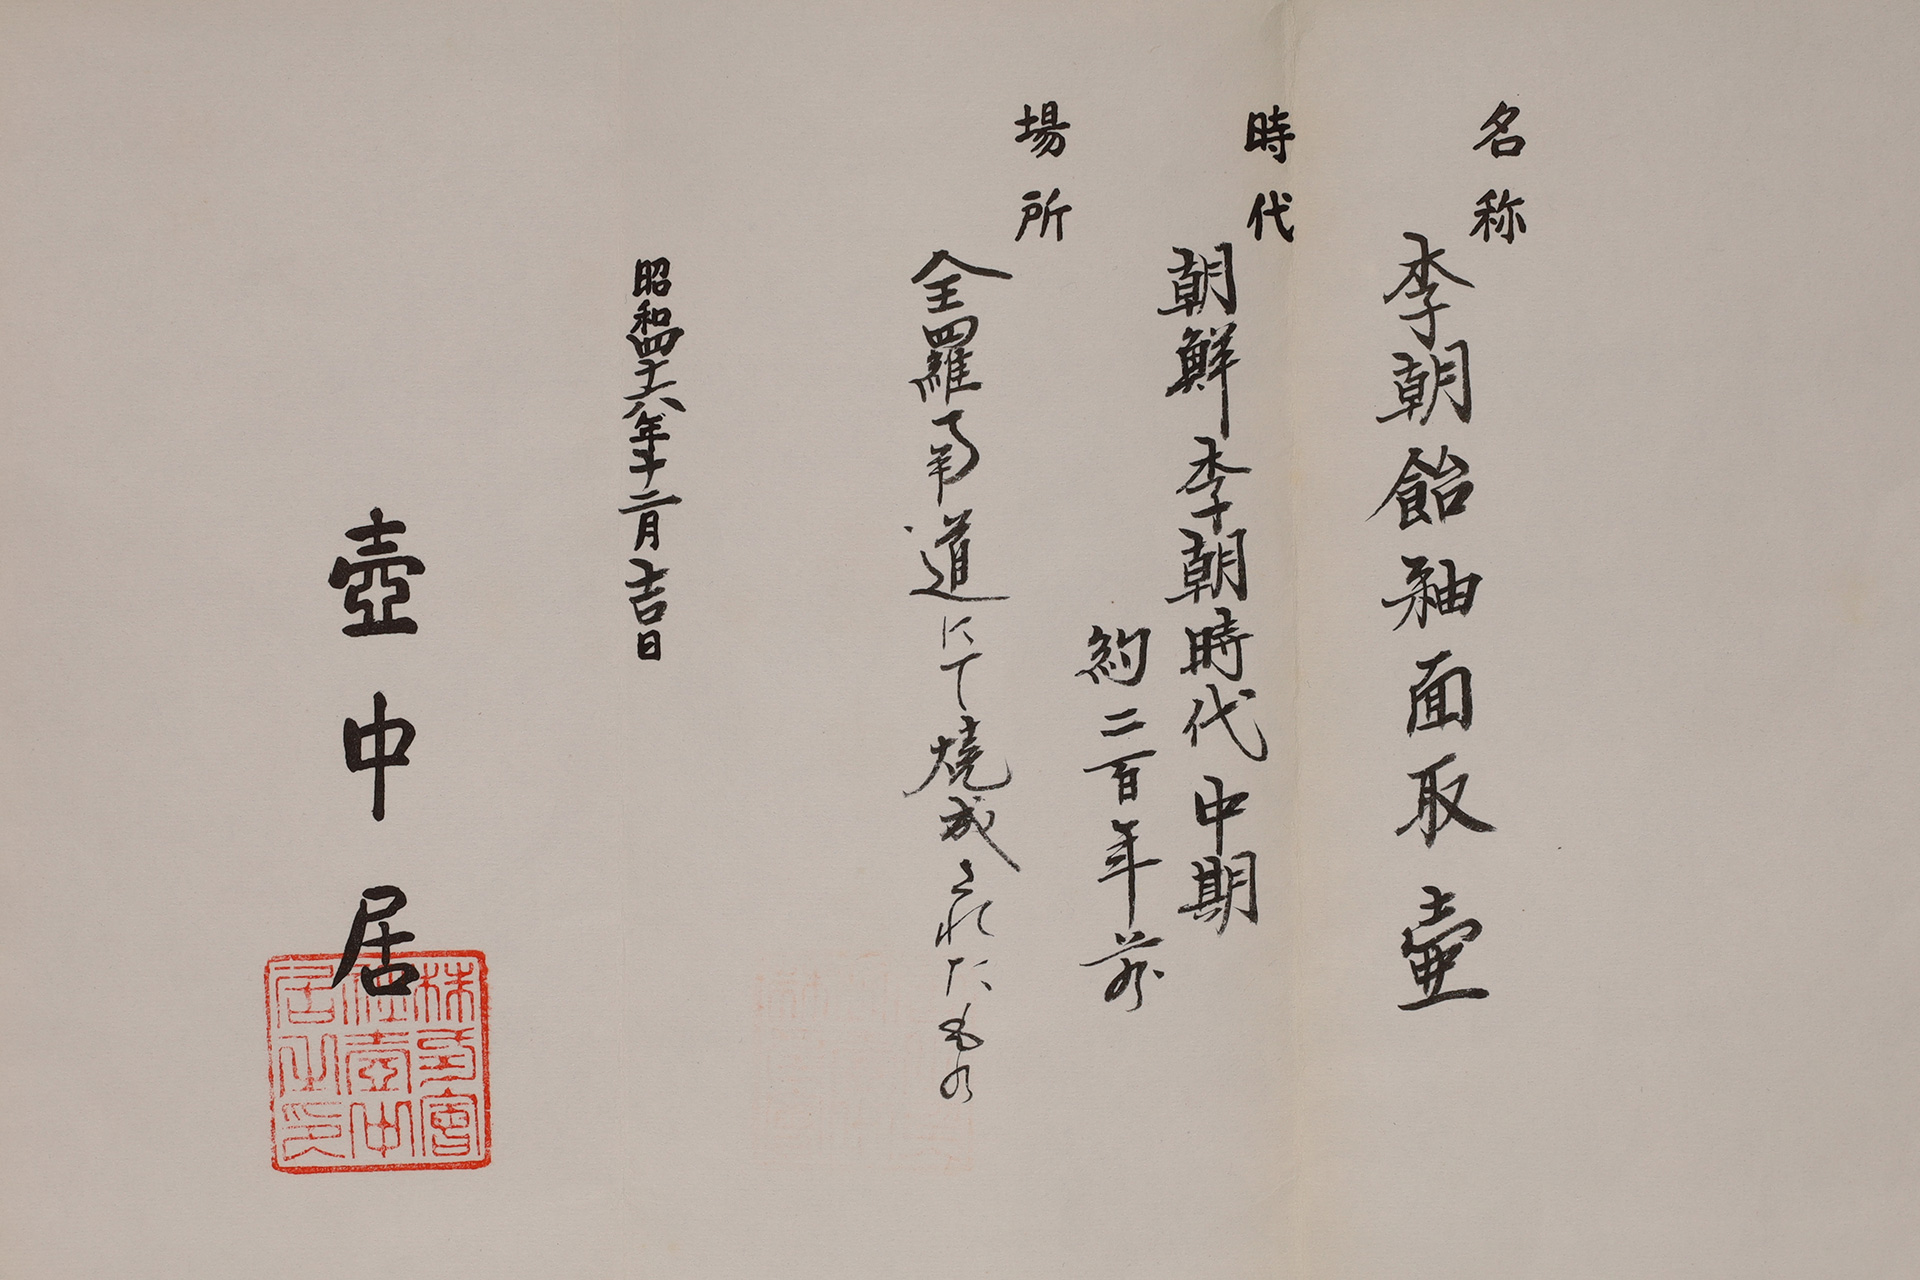 名称
李朝飴釉面取壷
時代
朝鮮李朝時代中期
約二百年前
場所
全羅南道にて焼成されたもの
昭和四十六年十二月吉日
壺中居
株式會
社壺中
居之印